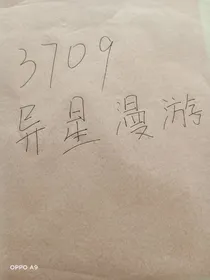 3709
异星漫游
OPPO A9